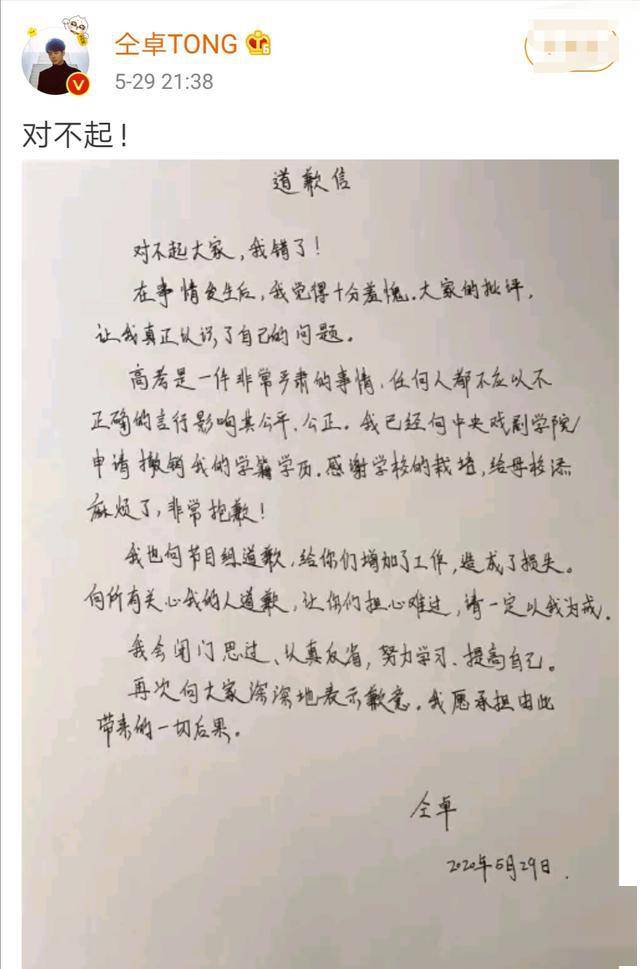 仝卓TONG
5-29 21:38
对不起!
道歉信
对不起大家,我错了!
在事情发生后,我觉得十分羞愧.大家的批评,
让我真正认识了自己的问题。
高考是一件非常严肃的事情,任何人都不应以不
正确的言行影响其公平、公正。我已经向中央戏剧学院
申请撤销我的学籍学历.感谢学校的栽培,给母校添
麻烦了,非常抱歉!
我也向节目组道歉,给你们增加了工作,造成了损失。
向所有关心我的人道歉,让你们担心难过,请一定以我为戒.
我会闭门思过、认真反省,努力学习.提高自己。
再次向大家深深地表示歉意.我愿承担由此
带来的一切后果。
仝卓
2020年5月29日.